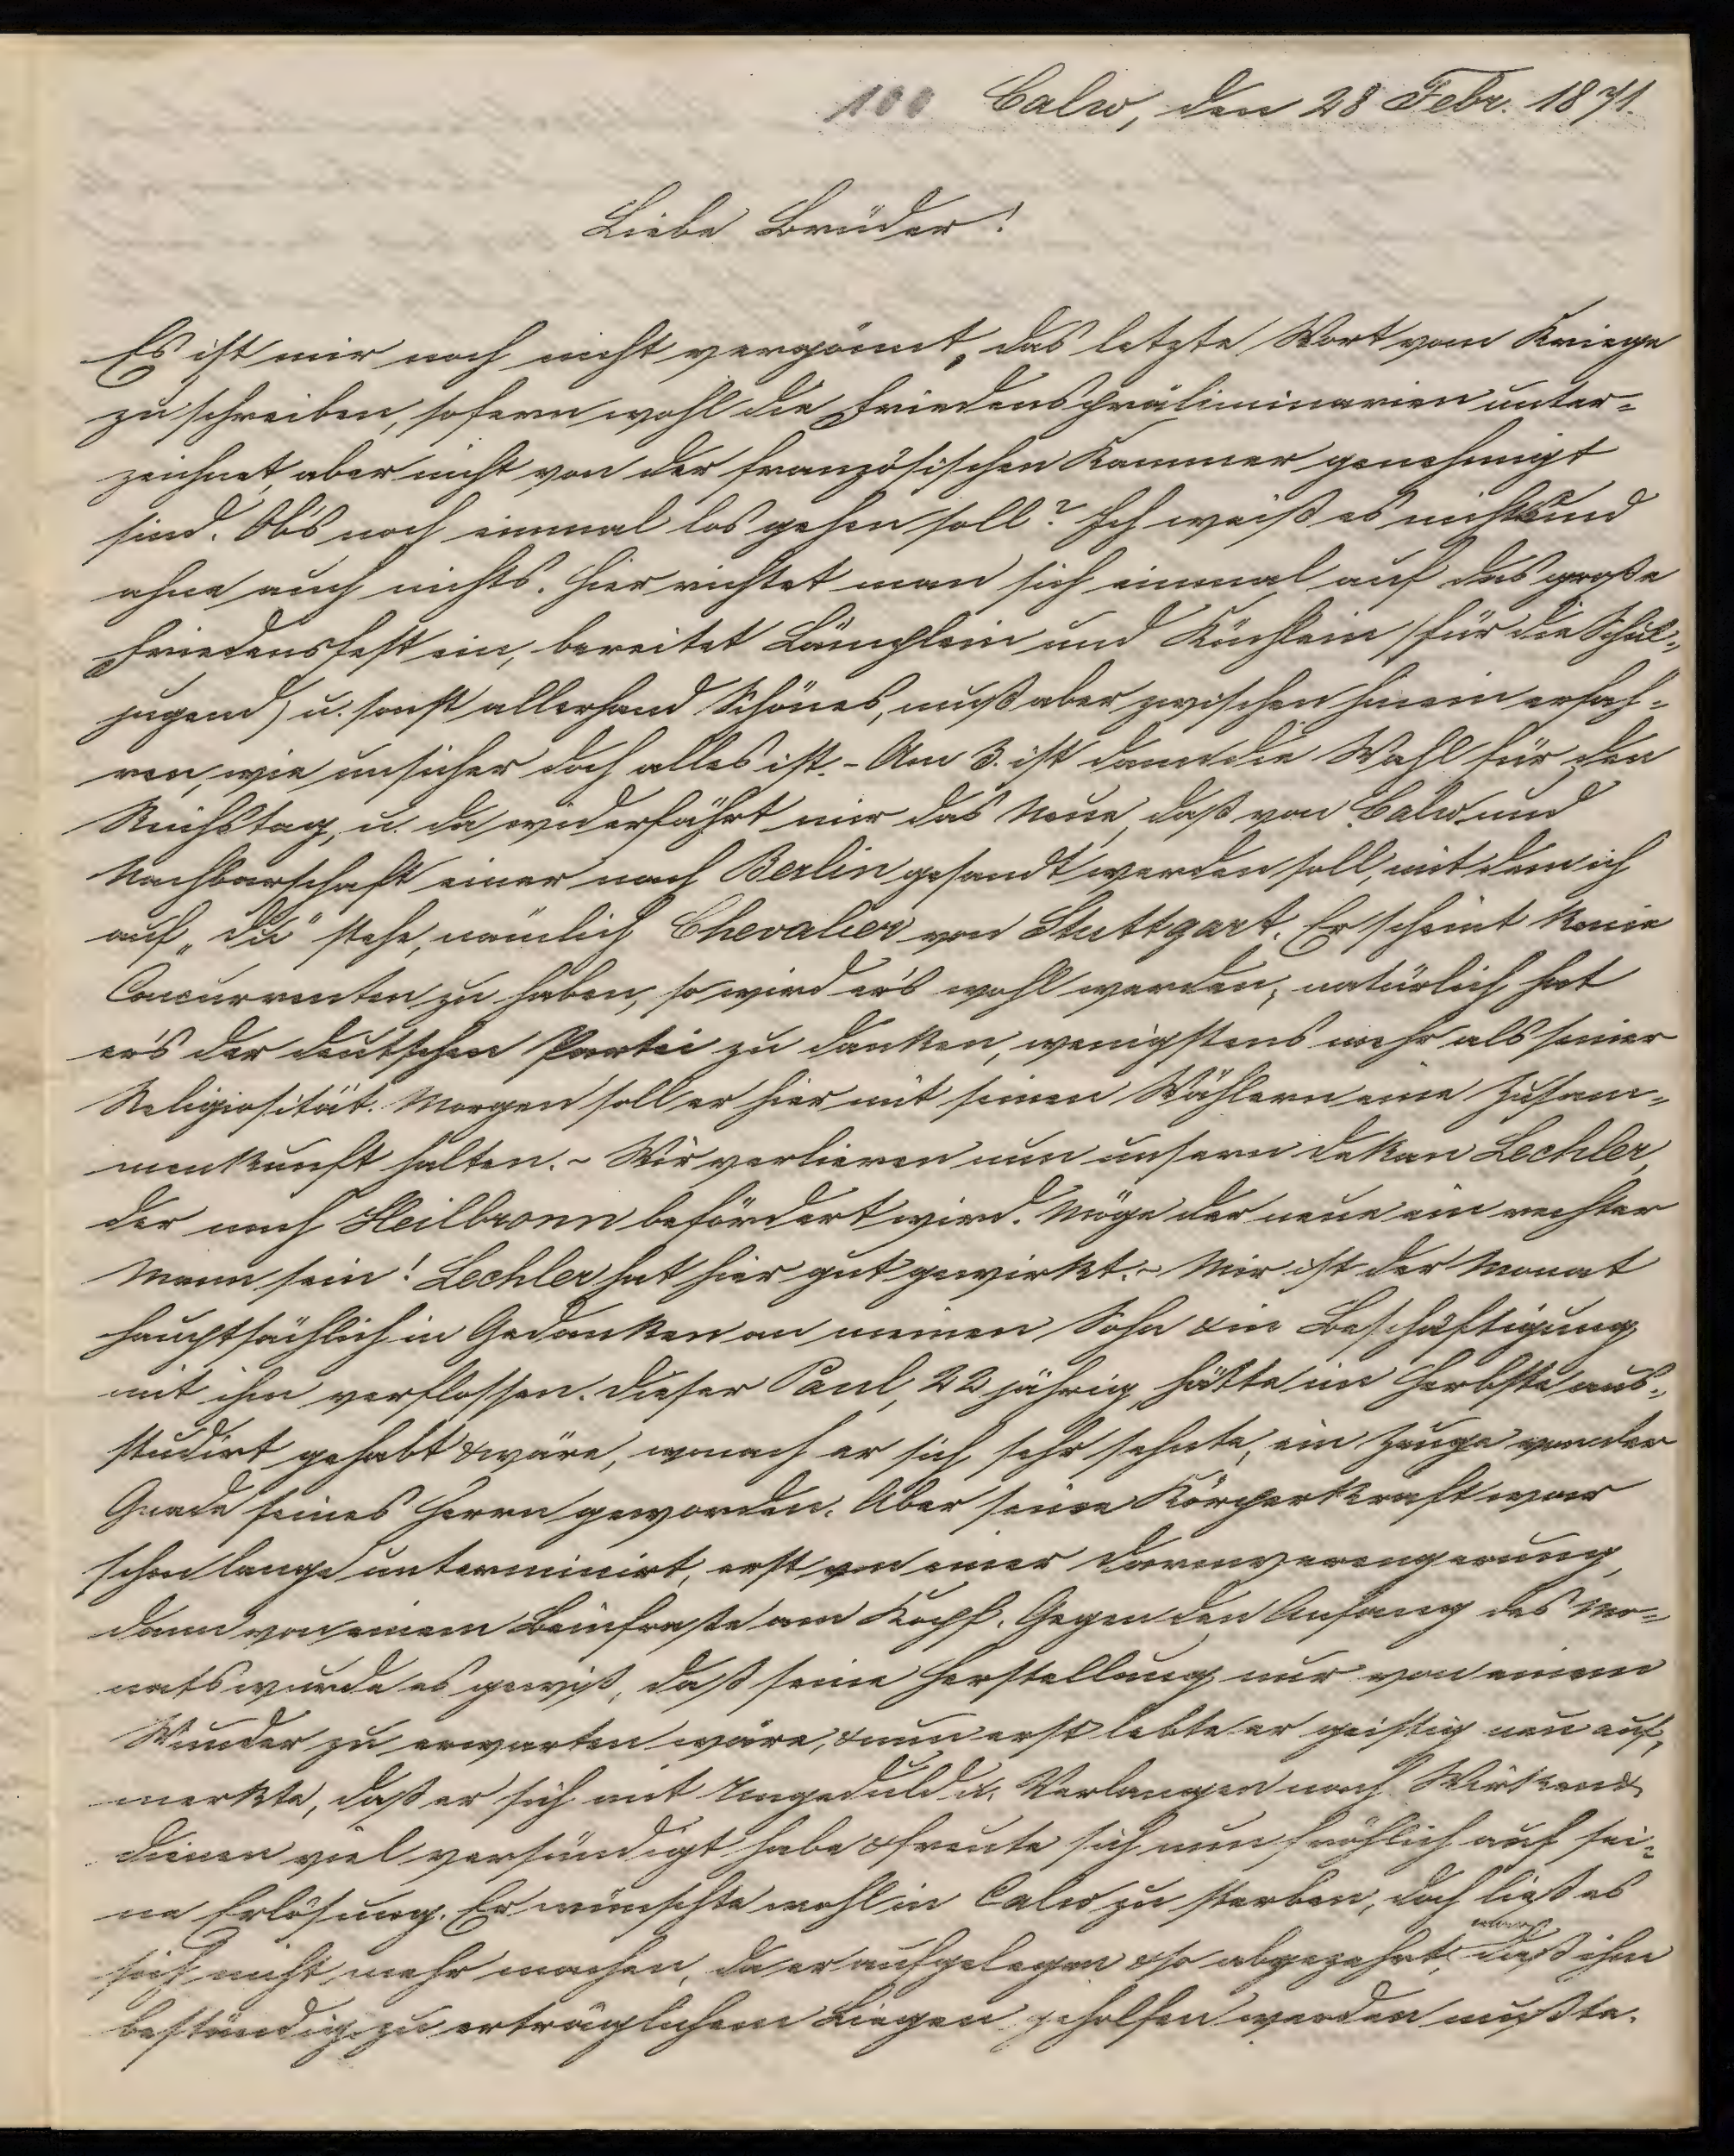 100 Calw, den 28 Febr. 1871.
Liebe Brüder!
Es ist mir noch nicht vergönnt, das letzte Wort vom Kriege
zu schreiben, sofern wohl die Friedenspräliminarien unter-
zeichnet, aber nicht von der französischen Kammer genehmigt
sind. Obs noch einmal los gehen soll? Ich weiß es nicht und
ahne auch nichts. Hier richtet man sich einmal auf das große
Friedensfest ein, bereitet Lämplein und Küchlein (für die Schul-
jugend) u. sonst allerhand Schönes, muß aber zwischen hinein erfah-
ren, wie unsicher doch alles ist. - Am 3. ist dann die Wahl für den
Reichstag, u. da widerfährt mir das Neue, daß von Calw und
Nachbarschaft einer nach Berlin gesandt werden soll, mit dem ich
auf „du" stehe, nämlich Chevalier von Stuttgart. Er scheint keine
Concurrenten zu haben, so wird ers wohl werden; natürlich hat
ers der deutschen Partei zu danken, wenigstens mehr als seiner
Religiosität. Morgen soll er hier mit seinen Wählern eine Zusam-
menkunft halten. - Wir verlieren nun unsern Dekan Lechler,
der nach Heilbronn befördert wird. Möge der neue ein rechter
Mann sein! Lechler hat hier gut gewirkt. - Mir ist der Monat
hauptsächlich in Gedanken an meinen Sohn & in Beschäftigung
mit ihm verflossen. Dieser Paul, 22 jährig, hätte im Herbste aus-
studirt gehabt & wäre, wonach er sich sehr sehnte, ein Zeuge von der
Gnade seines Herrn geworden. Aber seine Körperkraft war
schon lange unterminirt, erst von einer Darmverengerung,
dann von einem Beinfraße am Kopf. Gegen den Anfang des Mo-
nats wurde es gewiß, daß seine Herstellung nur von einem
Wunder zu erwarten wäre, & nun erst lebte er geistig neu auf,
merkte, daß er sich mit Ungeduld u. Verlangen nach Wirken &
dienen viel versündigt habe & freute sich nun fröhlich auf sei-
ne Erlösung. Er wünschte wohl in Calw zu sterben, doch ließ es
sich nicht mehr machen, da er aufgelegen & so abgezehrt, daß ihm
beständig zu erträglichem Liegen geholfen werden mußte.